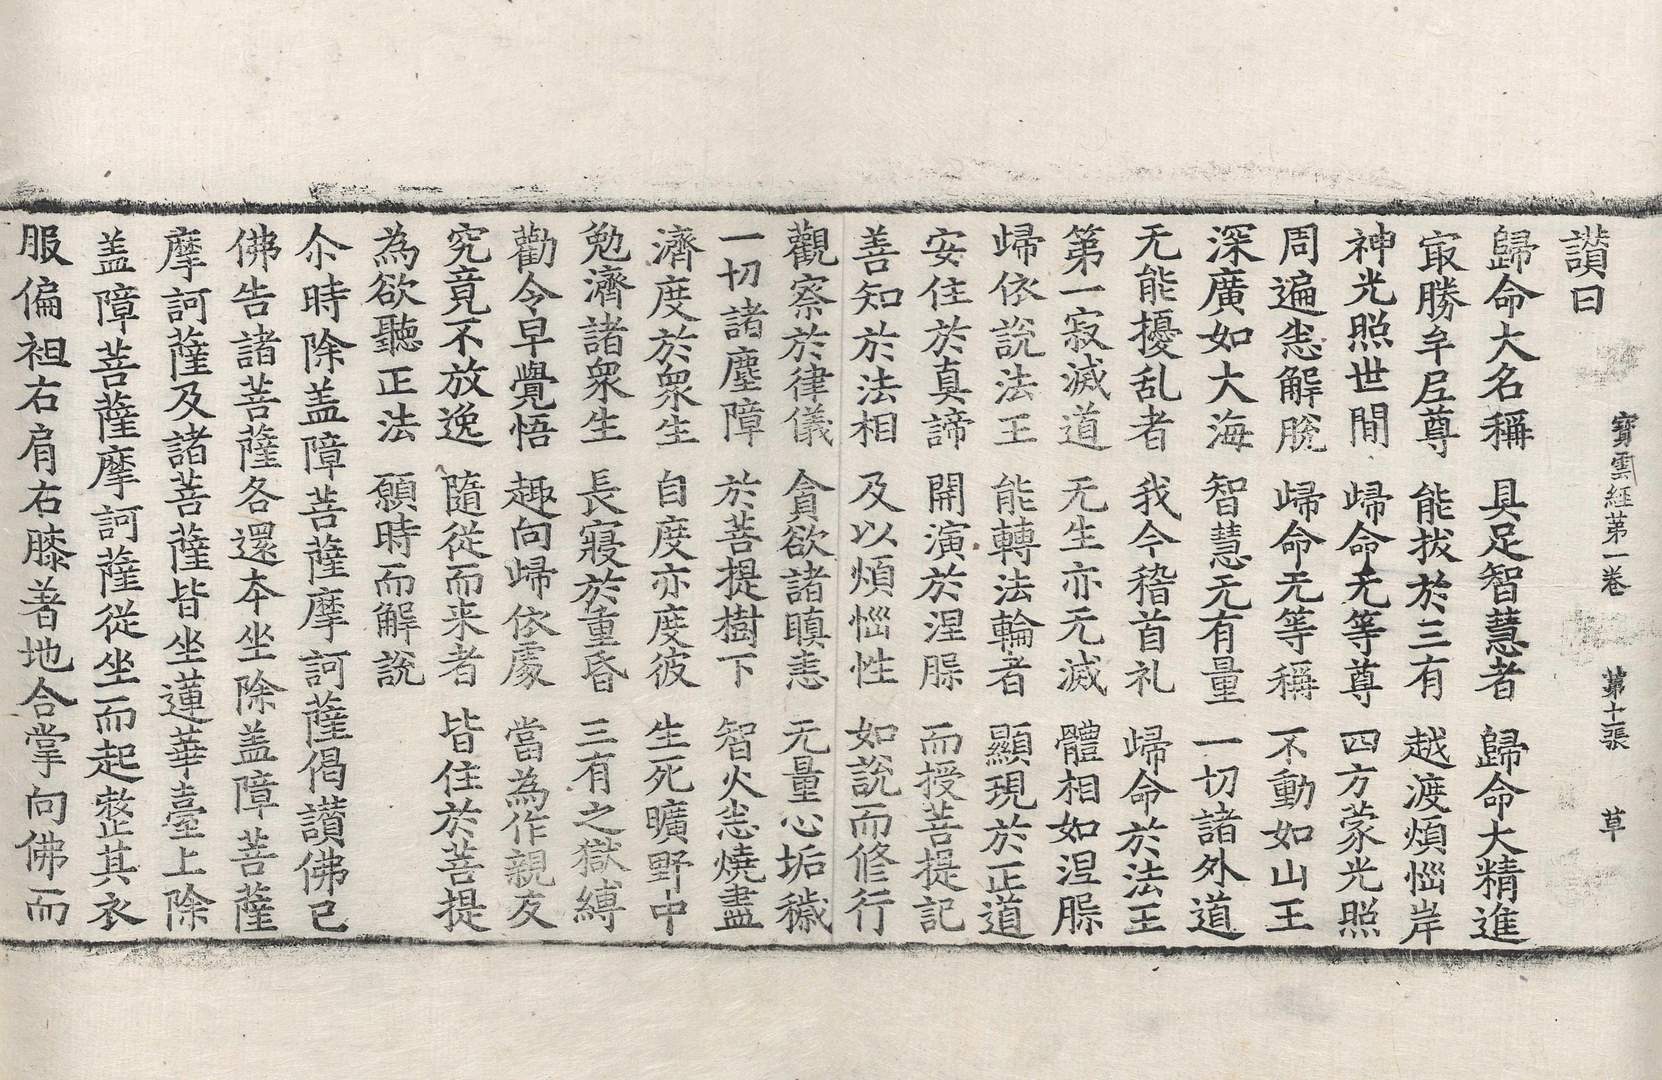 寶雲經第一卷 第十張 草
讃曰
歸命大名稱 具足智慧者 歸命大精進
㝡勝牟尼尊 能拔於三有 越渡煩惱岸
神光照世間 歸命无等尊 四方蒙光照
周遍悉解脫 歸命无等稱 不動如山王
深廣如大海 智慧无有量 一切諸外道
无能擾乱者 我今稽首礼 歸命於法王
第一寂滅道 无生亦无滅 體相如涅槃
歸依說法王 能轉法輪者 顯現於正道
安住於真諦 開演於涅槃 而授菩提記
善知於法相 及以煩惱性 如說而修行
觀察於律儀 貪欲諸瞋恚 无量心垢穢
一切諸塵障 於菩提樹下 智火悉燒盡
濟度於衆生 自度亦度彼 生死曠野中
勉濟諸衆生 長寢於重昏 三有之獄縛
勸令早覺悟 趣向歸依處 當為作親友
究竟不放逸 隨從而来者 皆住於菩提
為欲聽正法 願時而解說
尒時除盖障菩薩摩訶薩偈讃佛已
佛告諸菩薩各還本坐除盖障菩薩
摩訶薩及諸菩薩皆坐蓮華臺上除
盖障菩薩摩訶薩從坐而起整其衣
服偏袒右肩右膝著地合掌向佛而